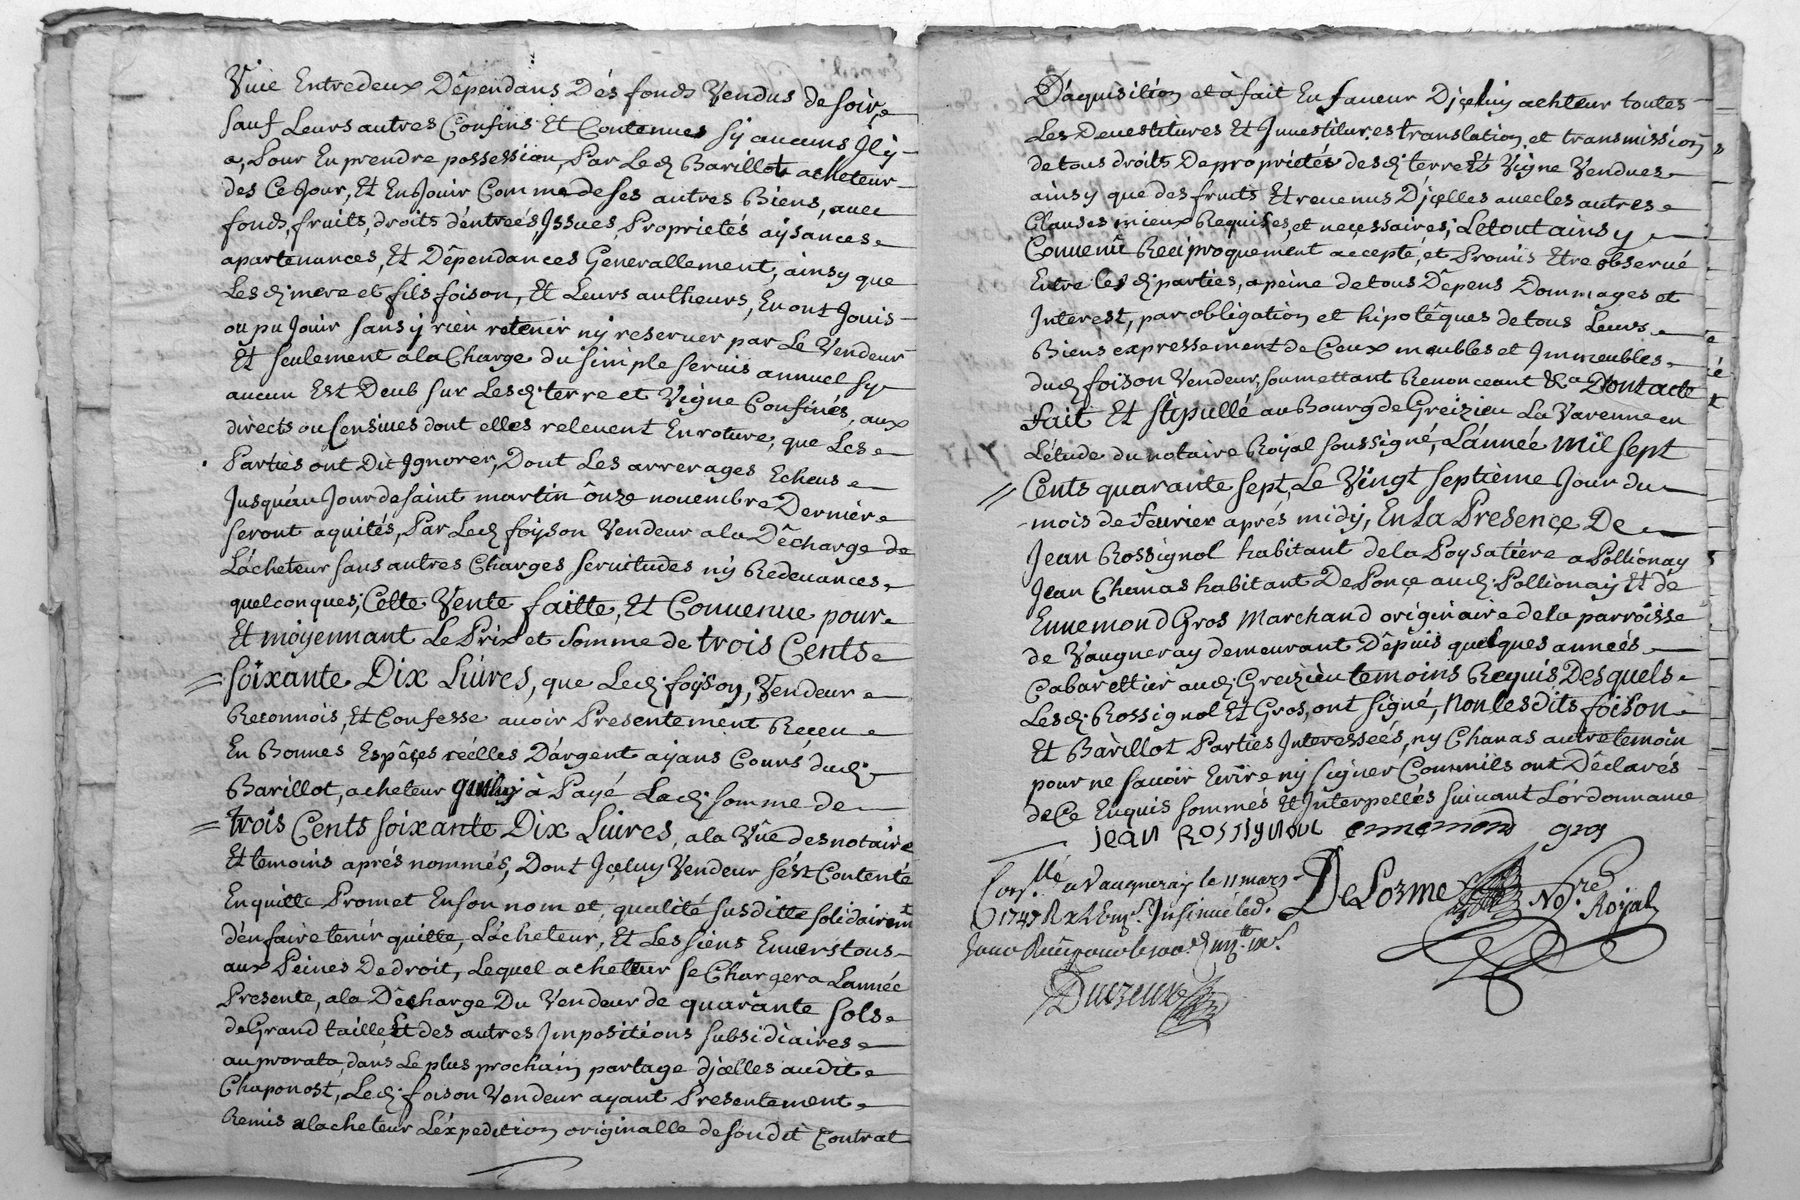 Vüie Entredeux Dêpendans Dés fonds Vendus de soir,
sauf Leurs autres Confins Et Contenues sÿ aucuns Jlÿ
a, Pour En prendre possession, Par Led. Barillot acheteur
des Ce Jour, Et En Jouir Comme de ses autres Biens, avec
fonds, fruits, droits d'entreés Jssues, Proprietés aÿsances
apartenances, Et Dêpendances Generallement, ainsy que
Lesd. mere et fils foison, Et Leurs autheurs, En ont Jouis
ou pu Jouir sans ÿ rien retenir nÿ reserver par Le Vendeur
Et seulement a la Charge du simple servis annuel sÿ
aucun Est Deub sur Lesd. terre et Vigne Confinés, aux
directs ou Censives dont elles relevent En roture, que Les
Parties ont Dit Jgnorer, Dont Les arrerages Echeus
Jusqu'au Jour de saint martin ônze novembre Dernier
seront aquités, Par Led. foison Vendeur a la Dêcharge de
L'acheteur sans autres Charges servitudes nÿ Redevances
quelconques; Cette Vente faitte, Et Convenue pour
Et moÿennant Le Prix et somme de trois Cents
soixante Dix Livres, que Led. foison, Vendeur
Reconnois, Et Confesse avoir Presentement Receu
En Bonnes Espêçes réelles D'argent aÿans Cours dud.
Barillot, acheteur qui luÿ à Payé Lad. somme de
trois Cents soixante Dix Livres, a la Vûe des notaire
Et temoins aprés nommés, Dont Jçeluy Vendeur s'ést Contenté
En quitte Promet En son nom et qualité susditte solidairemt
d'en faire tenir quitte, L'acheteur, Et Les siens Envers tous
aux Peines De droit, Lequel acheteur se Chargera Lannée
Presente, a la Dêcharge Du Vendeur de quarante sols
de Grand taille, Et des autres Jmpositions subsidiaires
au prorata, dans Le plus prochain partage djçelles audit
Chaponost, Led. foison Vendeur aÿant Presentement
Remis a lacheteur L'éxpedition originalle de son dit Contrat
D'aquisition et à fait En faveur Djçeluy achteur toutes
Les Devestitures Et Jnvestitures translation et transmission
de tous droits De proprietés desd. terre Et Vigne Vendues
ainsy que des fruits Et revenus Djçelles avec les autres
Clauses mieux Requises, et neçessaires; Le tout ainsy
Convenû Reciproquement accepté, et Promis Etre observé
Entre Lesd. parties, a peine de tous Dêpens Dommages et
Jnterest, par obligation et hipotêques de tous Leurs
Biens expressement de Ceux meubles et Jmmeubles
dud. foison Vendeur, soumettant Renonceant &a Dont acte
fait Et stipullé au Bourg de Greizieu La Varenne en
L'étude du notaire Roÿal soussigné, L'année mil sept
Cents quarante sept, Le Vingt septième Jour du
mois de fevrier aprés midÿ, En La Presençe De
Jean Rossignol habitant de la Poysatiére a Pollionay
Jean Chanas habitant De Ponçe aud. Pollionaÿ Et de
Ennemond Gros Marchand originaire de la parroisse
de Vaugneray demeurant Dêpuis quelques années
Cabarettier aud. Greizieu temoins Requis Desquels
Lesd. Rossignol Et Gros, ont signé, Non lesdits foison
Et Barillot Parties Jnteresseés, ny Chanas autre temoin
pour ne savoir Ecrire nÿ signer Comm'ils ont Dêclarés
de Ce Enquis sommés Et Jnterpellés suivant L'ordonnance
jean Rossignol ennemond gros
a Vaugneraÿ le 11 mars
1747 Jnsinué led.
DeLorme Nore. Royal